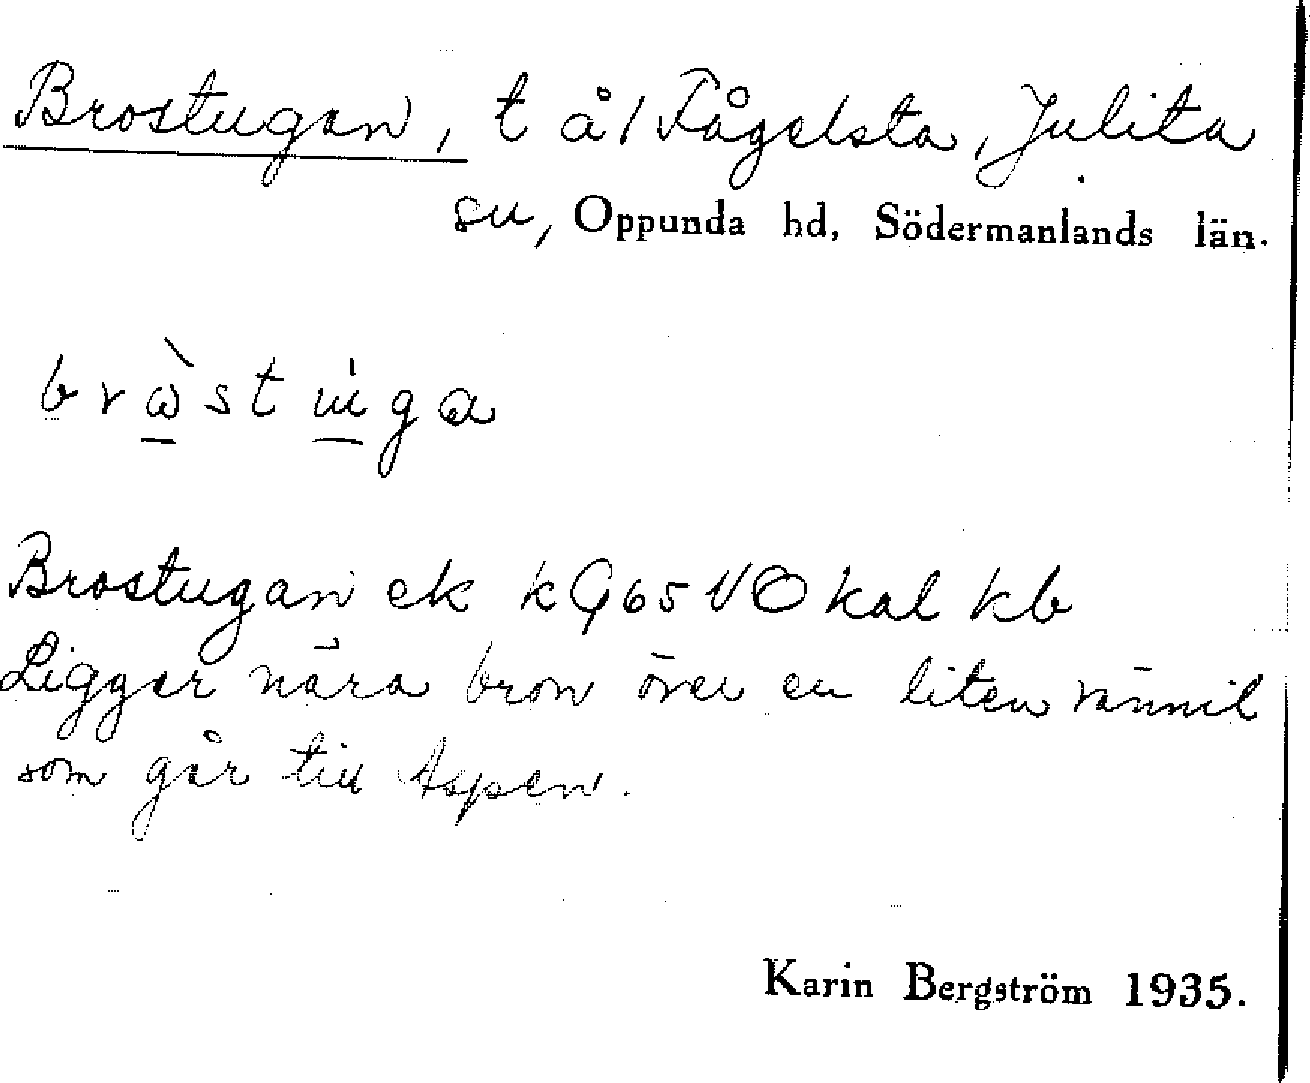 Brostugan, t å/ Fågelsta, Julita
sn, Oppunda hd, Södermanlands län.
Brostugan ek kG65 NO kal kb
Ligger nära bron över en liten rännil
som går till Aspen.
Karin Bergström 1935.